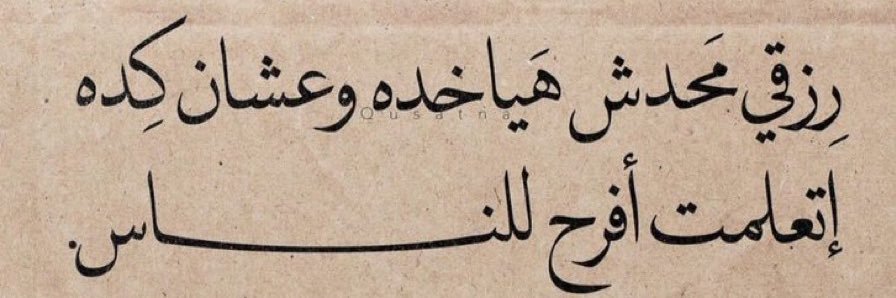 رِزقي مَحدش هَياخده وعشان كِده
Qusatna
إتعلمت أفرح للنـــــــــاس.